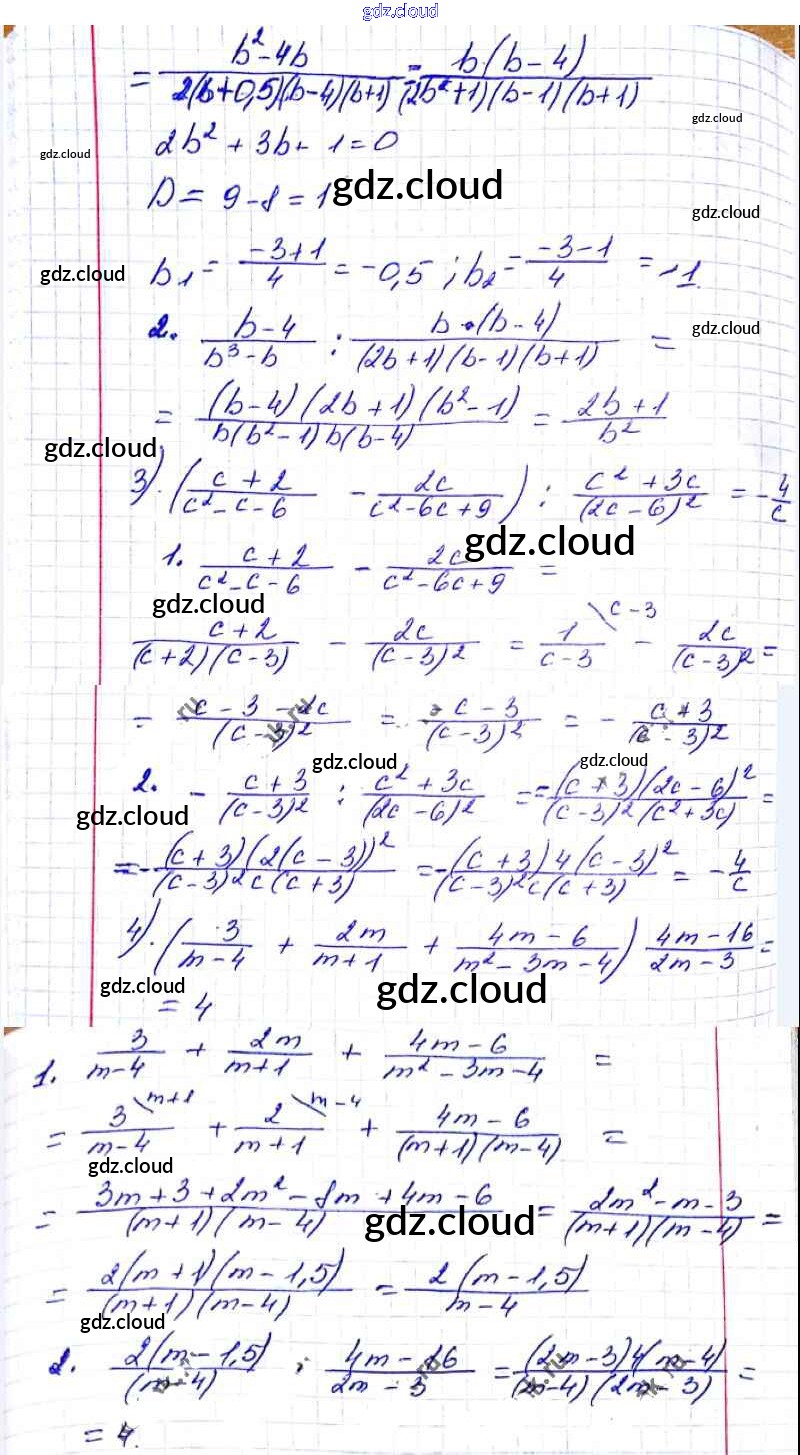 gdz.cloud
= (b² - 4b)/(2(b+0,5)(b-4)(b+1)) = b·(b-4)/((2b²+1)(b-1)(b+1))
gdz.cloud
2b² + 3b + 1 = 0
gdz.cloud
D = 9 - 8 = 1
gdz.cloud
gdz.cloud
b₁ = (-3+1)/4 = -0,5 ; b₂ = (-3-1)/4 = -1.
gdz.cloud
2. (b-4)/(b³-b) : b·(b-4)/((2b+1)(b-1)(b+1)) =
gdz.cloud
= (b-4)(2b+1)(b²-1)/(b(b²-1)b(b-4)) = (2b+1)/b²
gdz.cloud
3). ((c+2)/(c²-c-6) - 2c/(c²-6c+9)) : (c²+3c)/(2c-6)² = -4/c
gdz.cloud
1. (c+2)/(c²-c-6) - 2c/(c²-6c+9) =
gdz.cloud
(c+2)/((c+2)(c-3)) - 2c/(c-3)² = 1\c-3/(c-3) - 2c/(c-3)² =
= (c-3-2c)/(c-3)² = (-c-3)/(c-3)² = -(c+3)/(c-3)²
gdz.cloud
gdz.cloud
2. -(c+3)/(c-3)² : (c²+3c)/(2c-6)² = -(c+3)(2c-6)²/((c-3)²(c²+3c)) =
gdz.cloud
= -(c+3)(2(c-3))²/((c-3)²c(c+3)) = -(c+3)4(c-3)²/((c-3)²c(c+3)) = -4/c
4). (3/(m-4) + 2m/(m+1) + (4m-6)/(m²-3m-4)) (4m-16)/(2m-3) =
gdz.cloud
gdz.cloud
= 4
1. 3/(m-4) + 2m/(m+1) + (4m-6)/(m²-3m-4) =
= 3\m+1/(m-4) + 2\m-4/(m+1) + (4m-6)/((m+1)(m-4)) =
gdz.cloud
= (3m+3+2m²-8m+4m-6)/((m+1)(m-4)) = (2m²-m-3)/((m+1)(m-4)) =
gdz.cloud
= 2(m+1)(m-1,5)/((m+1)(m-4)) = 2(m-1,5)/(m-4)
gdz.cloud
2. 2(m-1,5)/(m-4) : (4m-16)/(2m-3) = (2m-3)4(m-4)/((m-4)(2m-3)) =
= 4.